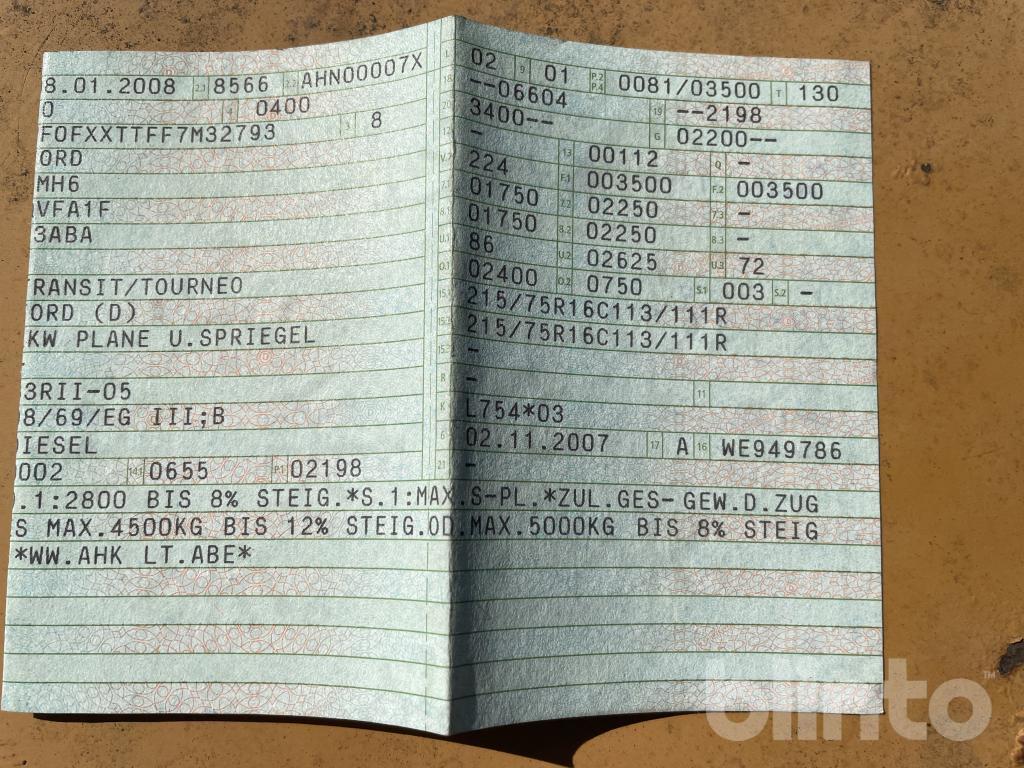 8.01.2008 2.1 8566 2.2 AHN00007X
0 4 0400
F0FXXTTFF7M32793 3 8
ORD
MH6
VFA1F
3ABA
RANSIT/TOURNEO
ORD (D)
KW PLANE U.SPRIEGEL
3RII-05
8/69/EG III;B
IESEL
002 14.1 0655 P.1 02198
L 02 9 01 P.2 P.4 0081/03500 T 130
18 --06604 19 --2198
20 3400-- G 02200--
12 - 13 00112 Q -
V.7 224 F.1 003500 F.2 003500
7.1 01750 7.2 02250 7.3 -
8.1 01750 8.2 02250 8.3 -
U.1 86 U.2 02625 U.3 72
O.1 02400 O.2 0750 S.1 003 S.2 -
15.1 215/75R16C113/111R
15.2 215/75R16C113/111R
15.3 -
R - 11
K L754*03
6 02.11.2007 17 A 16 WE949786
21 -
.1:2800 BIS 8% STEIG.*S.1:MAX.S-PL.*ZUL.GES-GEW.D.ZUG
S MAX.4500KG BIS 12% STEIG.OD.MAX.5000KG BIS 8% STEIG
*WW.AHK LT.ABE*
blinto™